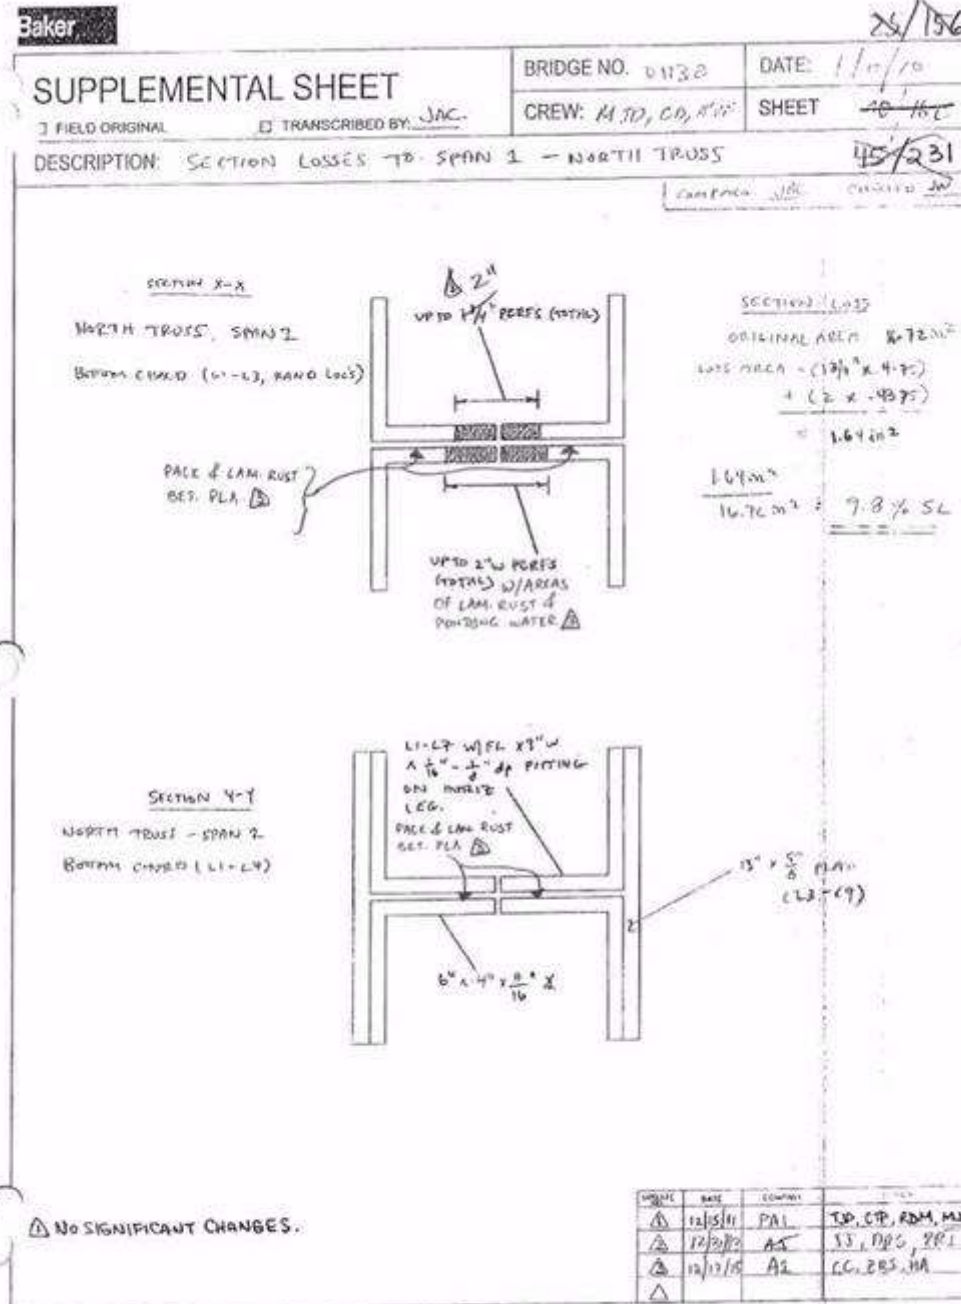 Baker
25/156
SUPPLEMENTAL SHEET
BRIDGE NO. 01138
DATE: 1/11/10
FIELD ORIGINAL
TRANSCRIBED BY: JAC.
CREW: MJD, CD,
SHEET
DESCRIPTION: SECTION LOSSES TO SPAN 1 - NORTH TRUSS
45/231
SECTION X-X
NORTH TRUSS, SPAN 2
BOTTOM CHORD (L1-L3, RAND LOCS)
1 2"
UP TO 1 3/4" PERFS (TOTAL)
PACK & LAM. RUST
BET. PLA 3
UP TO 2" W PERFS
(TOTAL) W/AREAS
OF LAM. RUST &
PONDING WATER
SECTION LOSS
ORIGINAL AREA 16.72 in²
LOSS AREA = (1 3/4" x 4.375)
+ (2 x .4375)
= 1.64 in²
1.64 in²
16.72 in² = 9.8 % SL
SECTION Y-Y
NORTH TRUSS - SPAN 2
BOTTOM CHORD (L1-L4)
L1-L7 W/FL x 3" W
x 1/16" - 1/8" dp PITTING
ON HORIZ
LEG.
PACK & LAM RUST
BET. PLA 3
13" x 5/8" PLA
(L3-L4)
6" x 4" x 11/16"
1 NO SIGNIFICANT CHANGES.
DATE COMPANY
1 12/15/11 PAI TJP, CTP, RDM,
2 AI SJ, DPS,
3 12/17/15 AI CC, EBS, HA